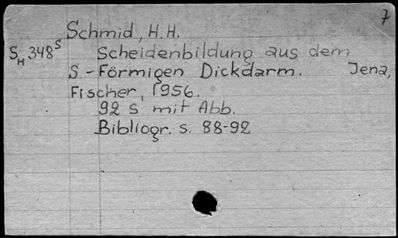 7
Schmid, H.H.
SH 348s Scheidenbildung aus dem
S-Förmigen Dickdarm. Jena,
Fischer, 1956.
92 s mit Abb.
Bibliogr. s. 88-92